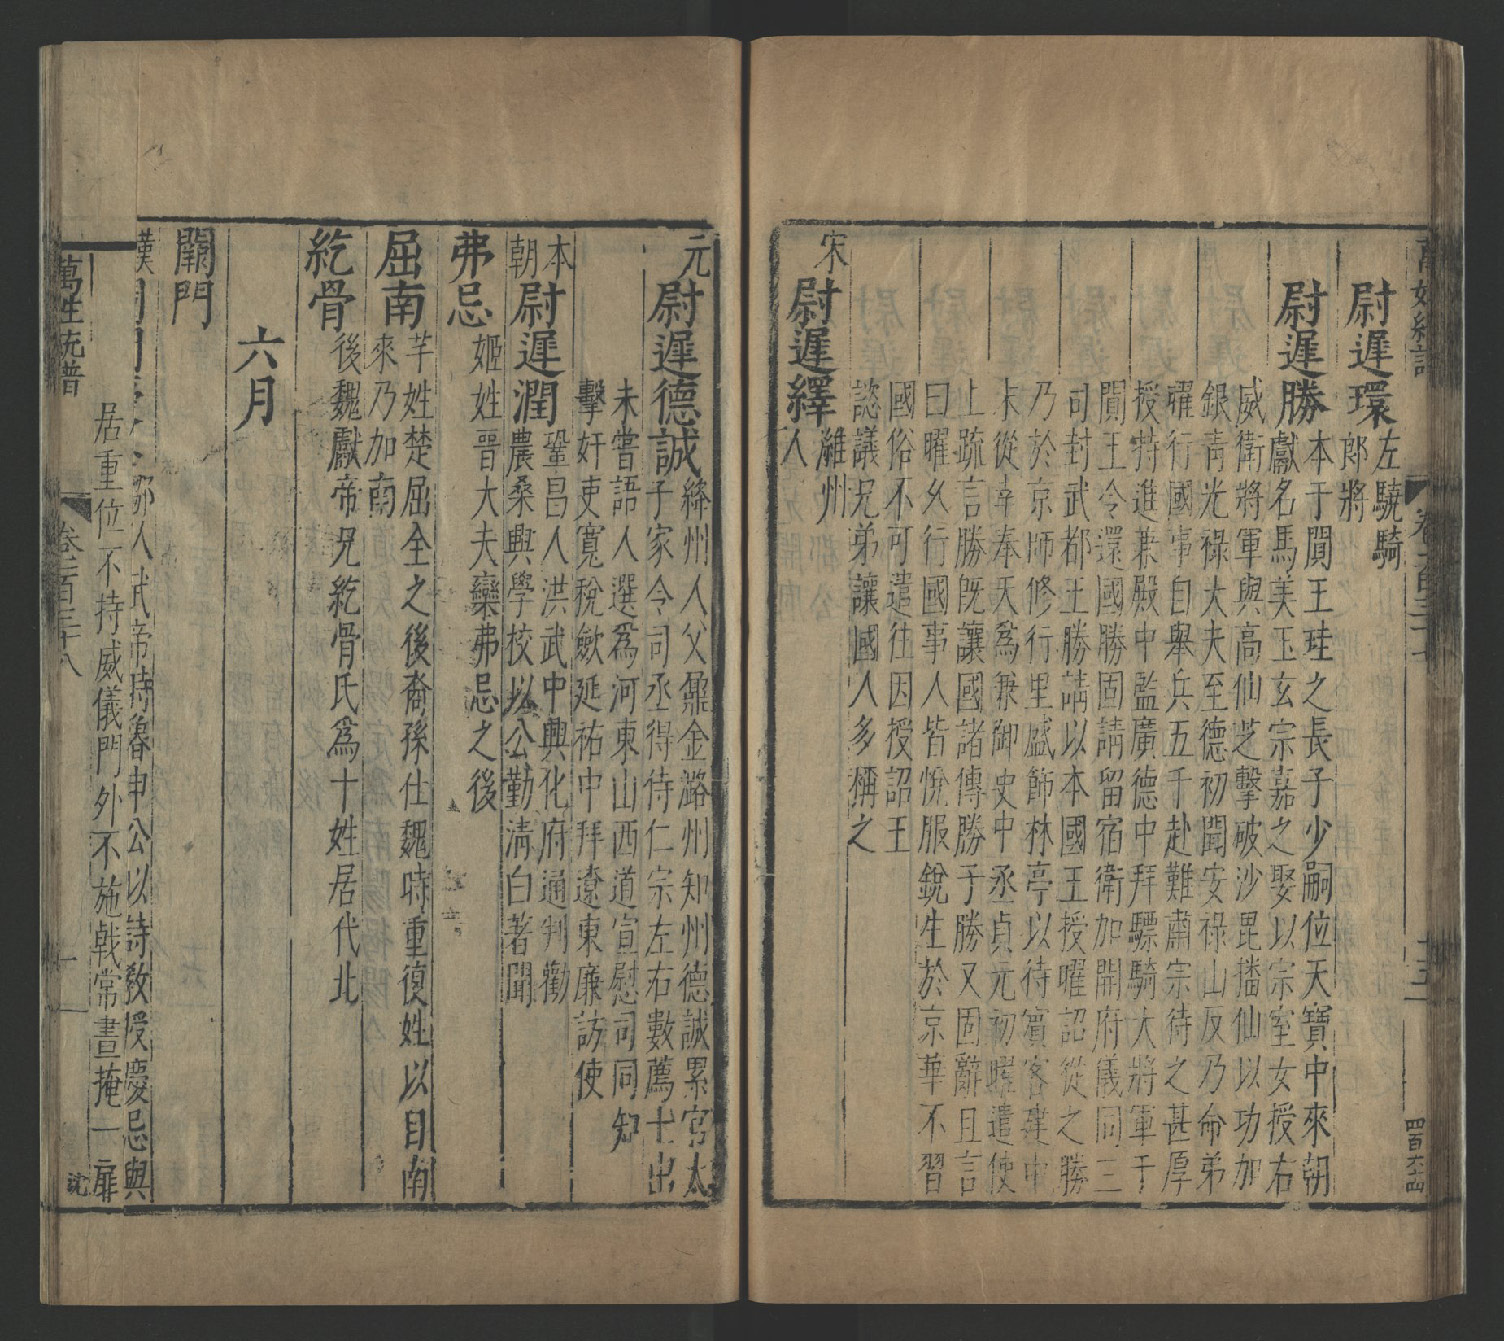 尉遲環左驍騎
郎將
尉遲勝本于闐王珪之長子少嗣位天寶中來朝
獻名馬美玉玄宗嘉之娶以宗室女授右
威衛將軍與高仙芝擊破沙毘播仙以功加
銀青光祿大夫至德初聞安祿山反乃命弟
曜行國事自舉兵五千赴難肅宗待之甚厚
授特進兼殿中監廣德中拜驃騎大將軍于
闐王令還國勝固請留宿衛加開府儀同三
司封武都王勝請以本國王授曜詔從之勝
乃於京師修行里盛飾林亭以待賓客建中
末從幸奉天為兼御史中丞貞元初曜遣使
上疏言勝既讓國諸傳勝于勝又固辭且言
曰曜久行國事人皆悅服銳生於京華不習
國俗不可遣往因授詔王
諮議兄弟讓國人多稱之
宋尉遲繹濰州
人
元尉遲德誠絳州人父鼐金潞州知州德誠累官太
子家令司丞得侍仁宗左右數薦士出
未嘗語人選為河東山西道宣慰司同知
擊奸吏寬稅斂延祐中拜遼東廉訪使
本朝尉遲潤鞏昌人洪武中興化府通判勸
農桑興學校以公勤清白著聞
弗忌姬姓晉大夫欒弗忌之後
屈南羋姓楚屈全之後裔孫仕魏時重復姓以自南
來乃加南
紇骨後魏獻帝兄紇骨氏為十姓居代北
六月
闕門
漢人武帝時嘗申公以詩教授慶忌與
萬姓統譜 卷一百三十八 一 沈
居重位不持威儀門外不施戟常晝掩一扉